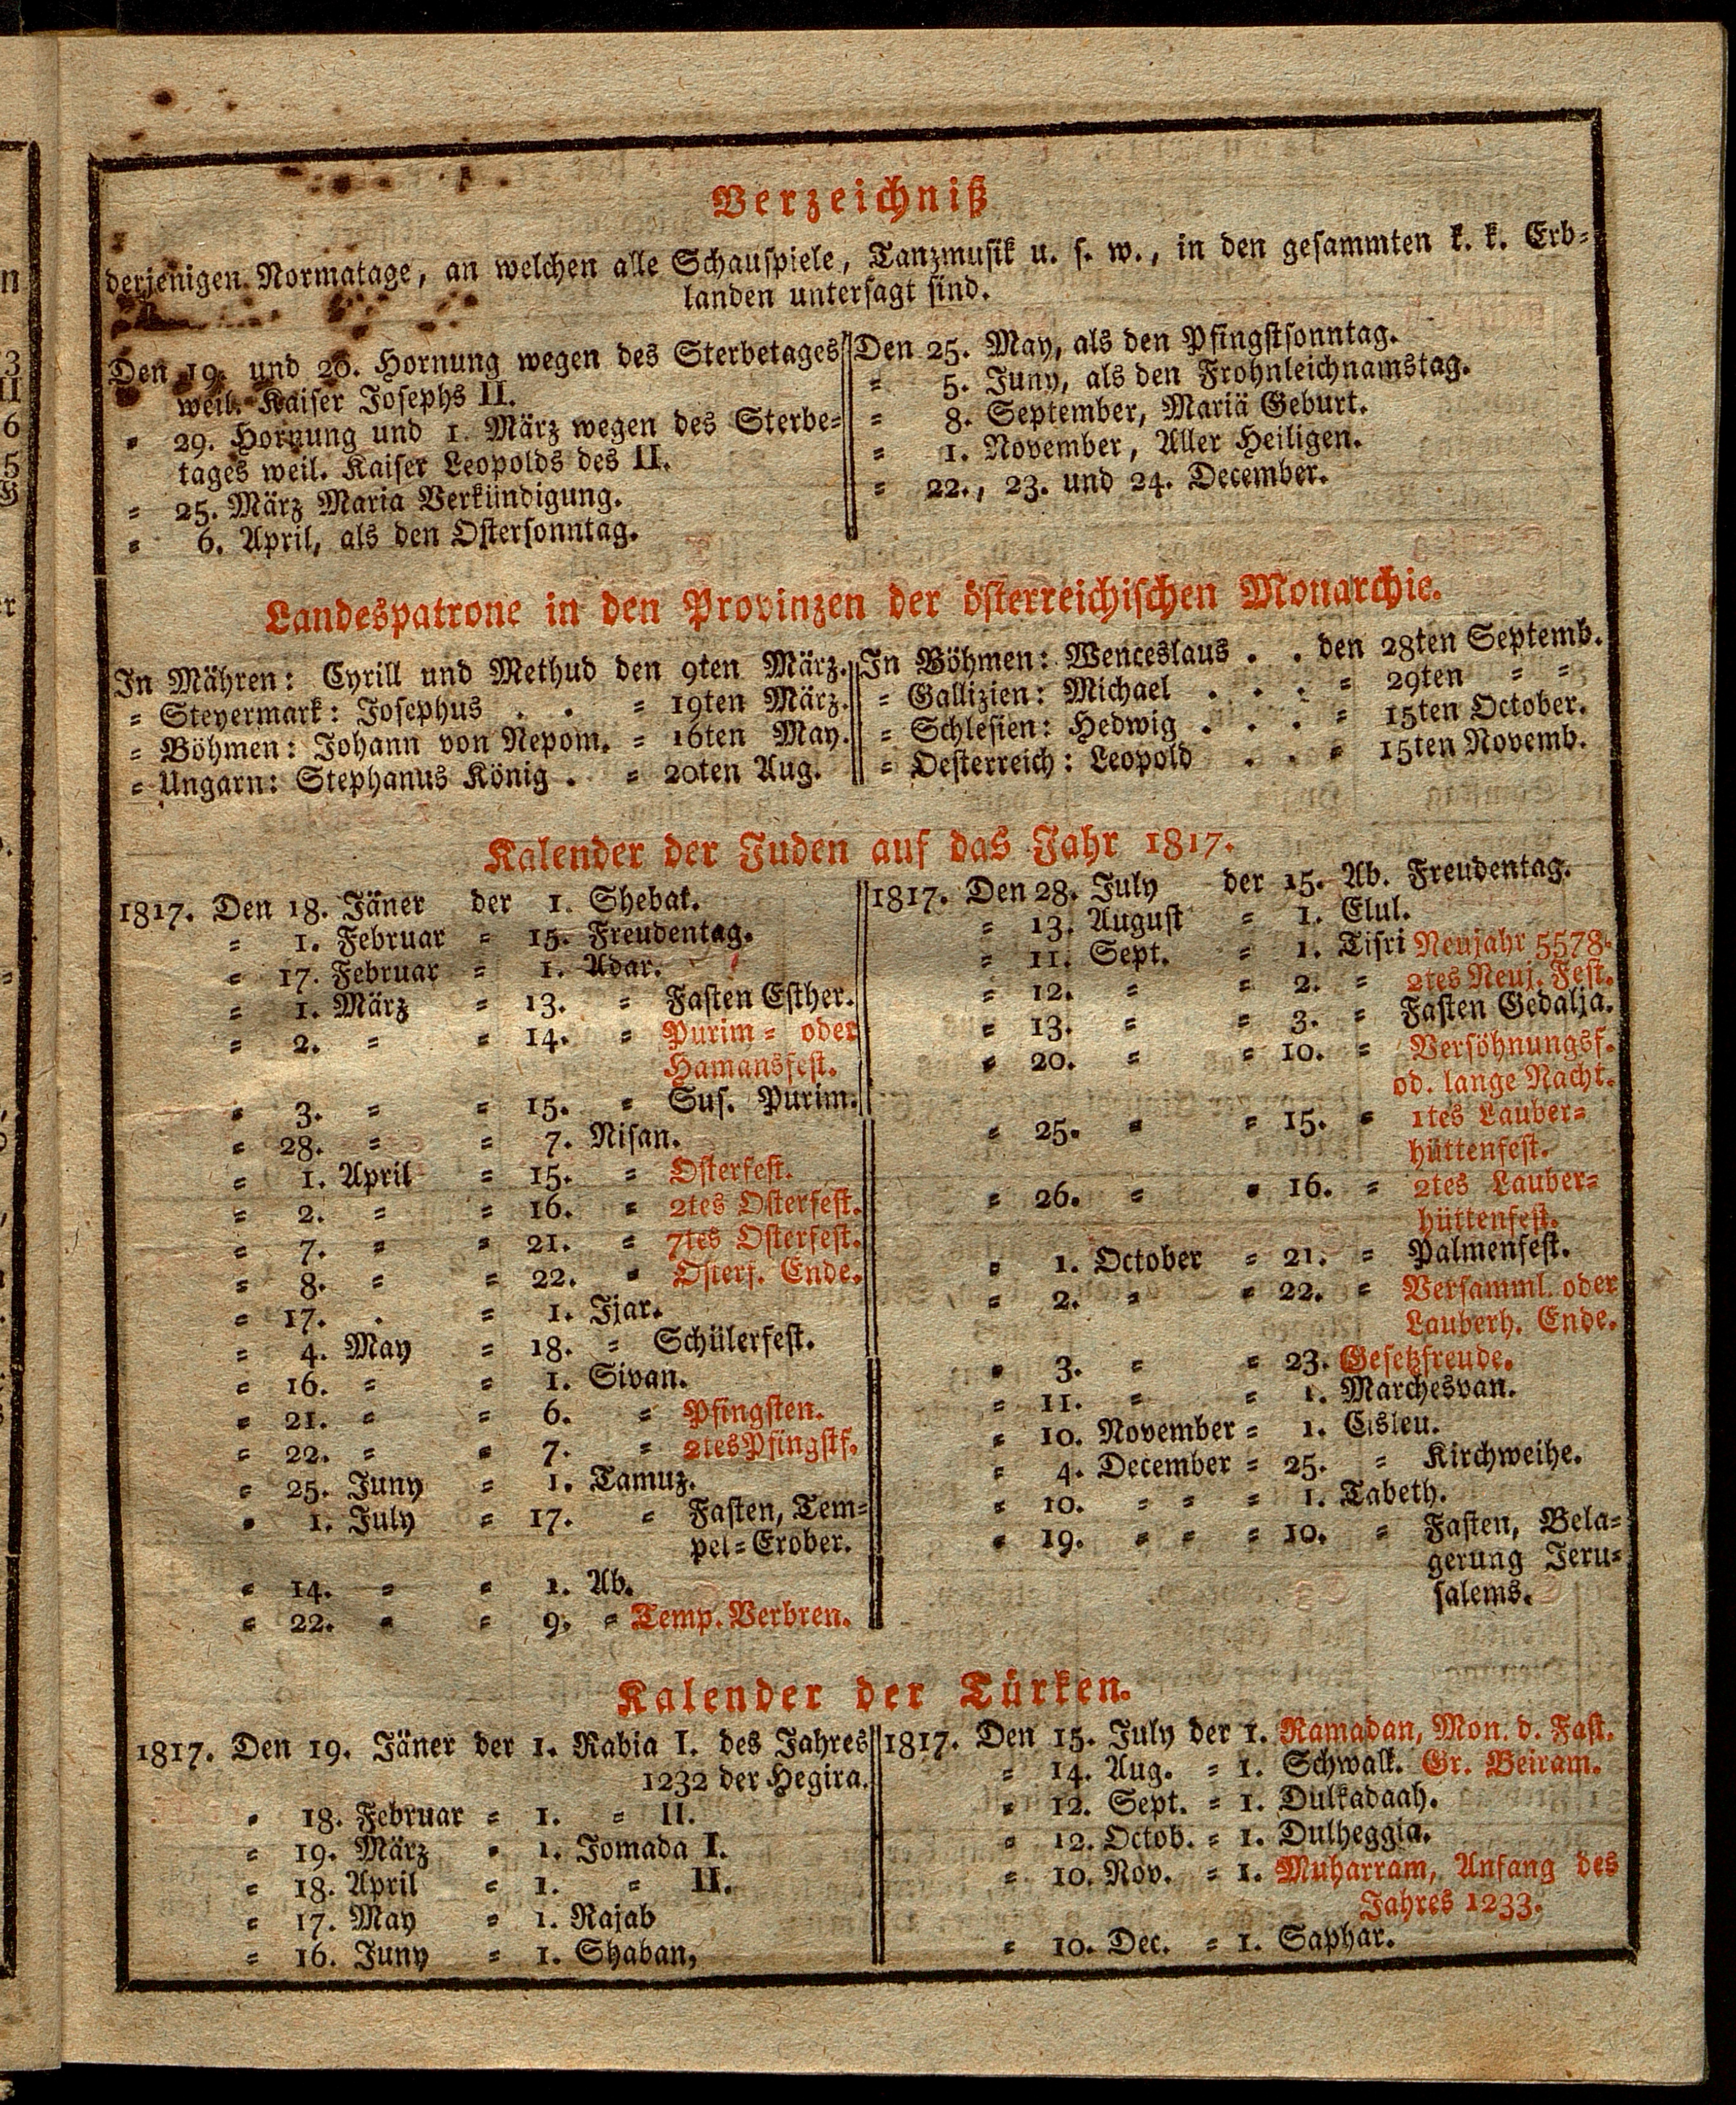 Verzeichniß
derjenigen Normatage, an welchen alle Schauspiele, Tanzmusik u. s. w., in den gesammten k. k. Erb-
landen untersagt sind.
Den 19. und 20. Hornung wegen des Sterbetages
weil. Kaiser Josephs II.
= 29. Hornung und 1. März wegen des Sterbe-
tages weil. Kaiser Leopolds des II.
= 25. März Maria Verkündigung.
= 6. April, als den Ostersonntag.
Den 25. May, als den Pfingstsonntag.
= 5. Juny, als den Frohnleichnamstag.
= 8. September, Mariä Geburt.
= 1. November, Aller Heiligen.
= 22., 23. und 24. December.
Landespatrone in den Provinzen der österreichischen Monarchie.
In Mähren: Cyrill und Methud den 9ten März.
= Steyermark: Josephus . . = 19ten März.
= Böhmen: Johann von Nepom. = 16ten May.
= Ungarn: Stephanus König . = 20ten Aug.
In Böhmen: Wenceslaus . . den 28ten Septemb.
= Gallizien: Michael . . . = 29ten = =
= Schlesien: Hedwig . . . = 15ten October.
= Oesterreich: Leopold . . = 15ten Novemb.
Kalender der Juden auf das Jahr 1817.
1817. Den 18. Jäner der 1. Shebat.
= 1. Februar = 15. Freudentag.
= 17. Februar = 1. Adar.
= 1. März = 13. = Fasten Esther.
= 2. = = 14. = Purim = oder
Hamansfest.
= 3. = = 15. = Sus. Purim.
= 28. = = 7. Nisan.
= 1. April = 15. = Osterfest.
= 2. = = 16. = 2tes Osterfest.
= 7. = = 21. = 7tes Osterfest.
= 8. = = 22. = Osterf. Ende.
= 17. . = 1. Ijar.
= 4. May = 18. = Schülerfest.
= 16. = = 1. Sivan.
= 21. = = 6. = Pfingsten.
= 22. = = 7. = 2tes Pfingstf.
= 25. Juny = 1. Tamuz.
= 1. July = 17. = Fasten, Tem-
pel=Erober.
= 14. = = 1. Ab.
= 22. = = 9. = Temp. Verbren.
1817. Den 28. July der 15. Ab. Freudentag.
= 13. August = 1. Elul.
= 11. Sept. = 1. Tisri Neujahr 5578.
= 12. = = 2. = 2tes Neuj. Fest.
= 13. = = 3. = Fasten Gedalja.
= 20. = = 10. = Versöhnungsf.
od. lange Nacht.
= 25. = = 15. = 1tes Lauber-
hüttenfest.
= 26. = = 16. = 2tes Lauber-
hüttenfest.
= 1. October = 21. = Palmenfest.
= 2. = = 22. = Versamml. oder
Lauberh. Ende.
= 3. = = 23. Gesetzfreude.
= 11. = = 1. Marchesvan.
= 10. November = 1. Cisleu.
= 4. December = 25. = Kirchweihe.
= 10. = = = 1. Tabeth.
= 19. = = = 10. = Fasten, Bela-
gerung Jeru-
salems.
Kalender der Türken.
1817. Den 19. Jäner der 1. Rabia I. des Jahres
1232 der Hegira.
= 18. Februar = 1. = II.
= 19. März = 1. Jomada I.
= 18. April = 1. = II.
= 17. May = 1. Rajab
= 16. Juny = 1. Shaban,
1817. Den 15. July der 1. Ramadan, Mon. d. Fast.
= 14. Aug. = 1. Schwalk. Gr. Beiram.
= 12. Sept. = 1. Dulkadaah.
= 12. Octob. = 1. Dulheggia.
= 10. Nov. = 1. Muharram, Anfang des
Jahres 1233.
= 10. Dec. = 1. Saphar.